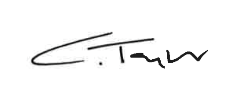 C. Taylor